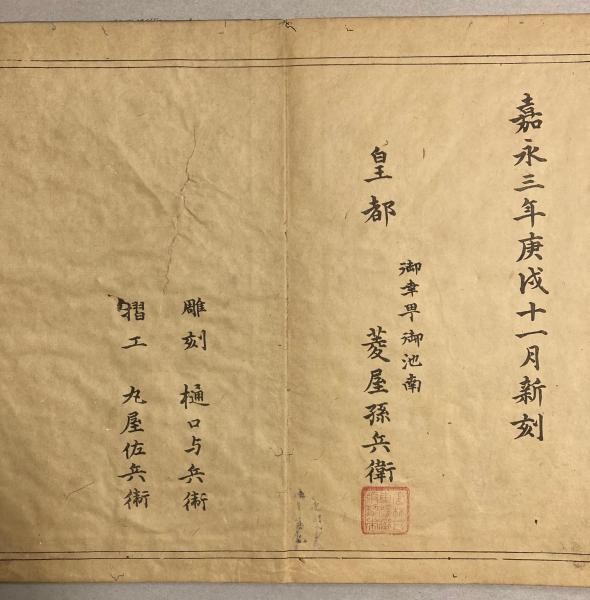 嘉永三年庚戌十一月新刻
皇都
御幸甼御池南
菱屋孫兵衛
雕刻　樋口与兵衛
摺工　丸屋佐兵衛